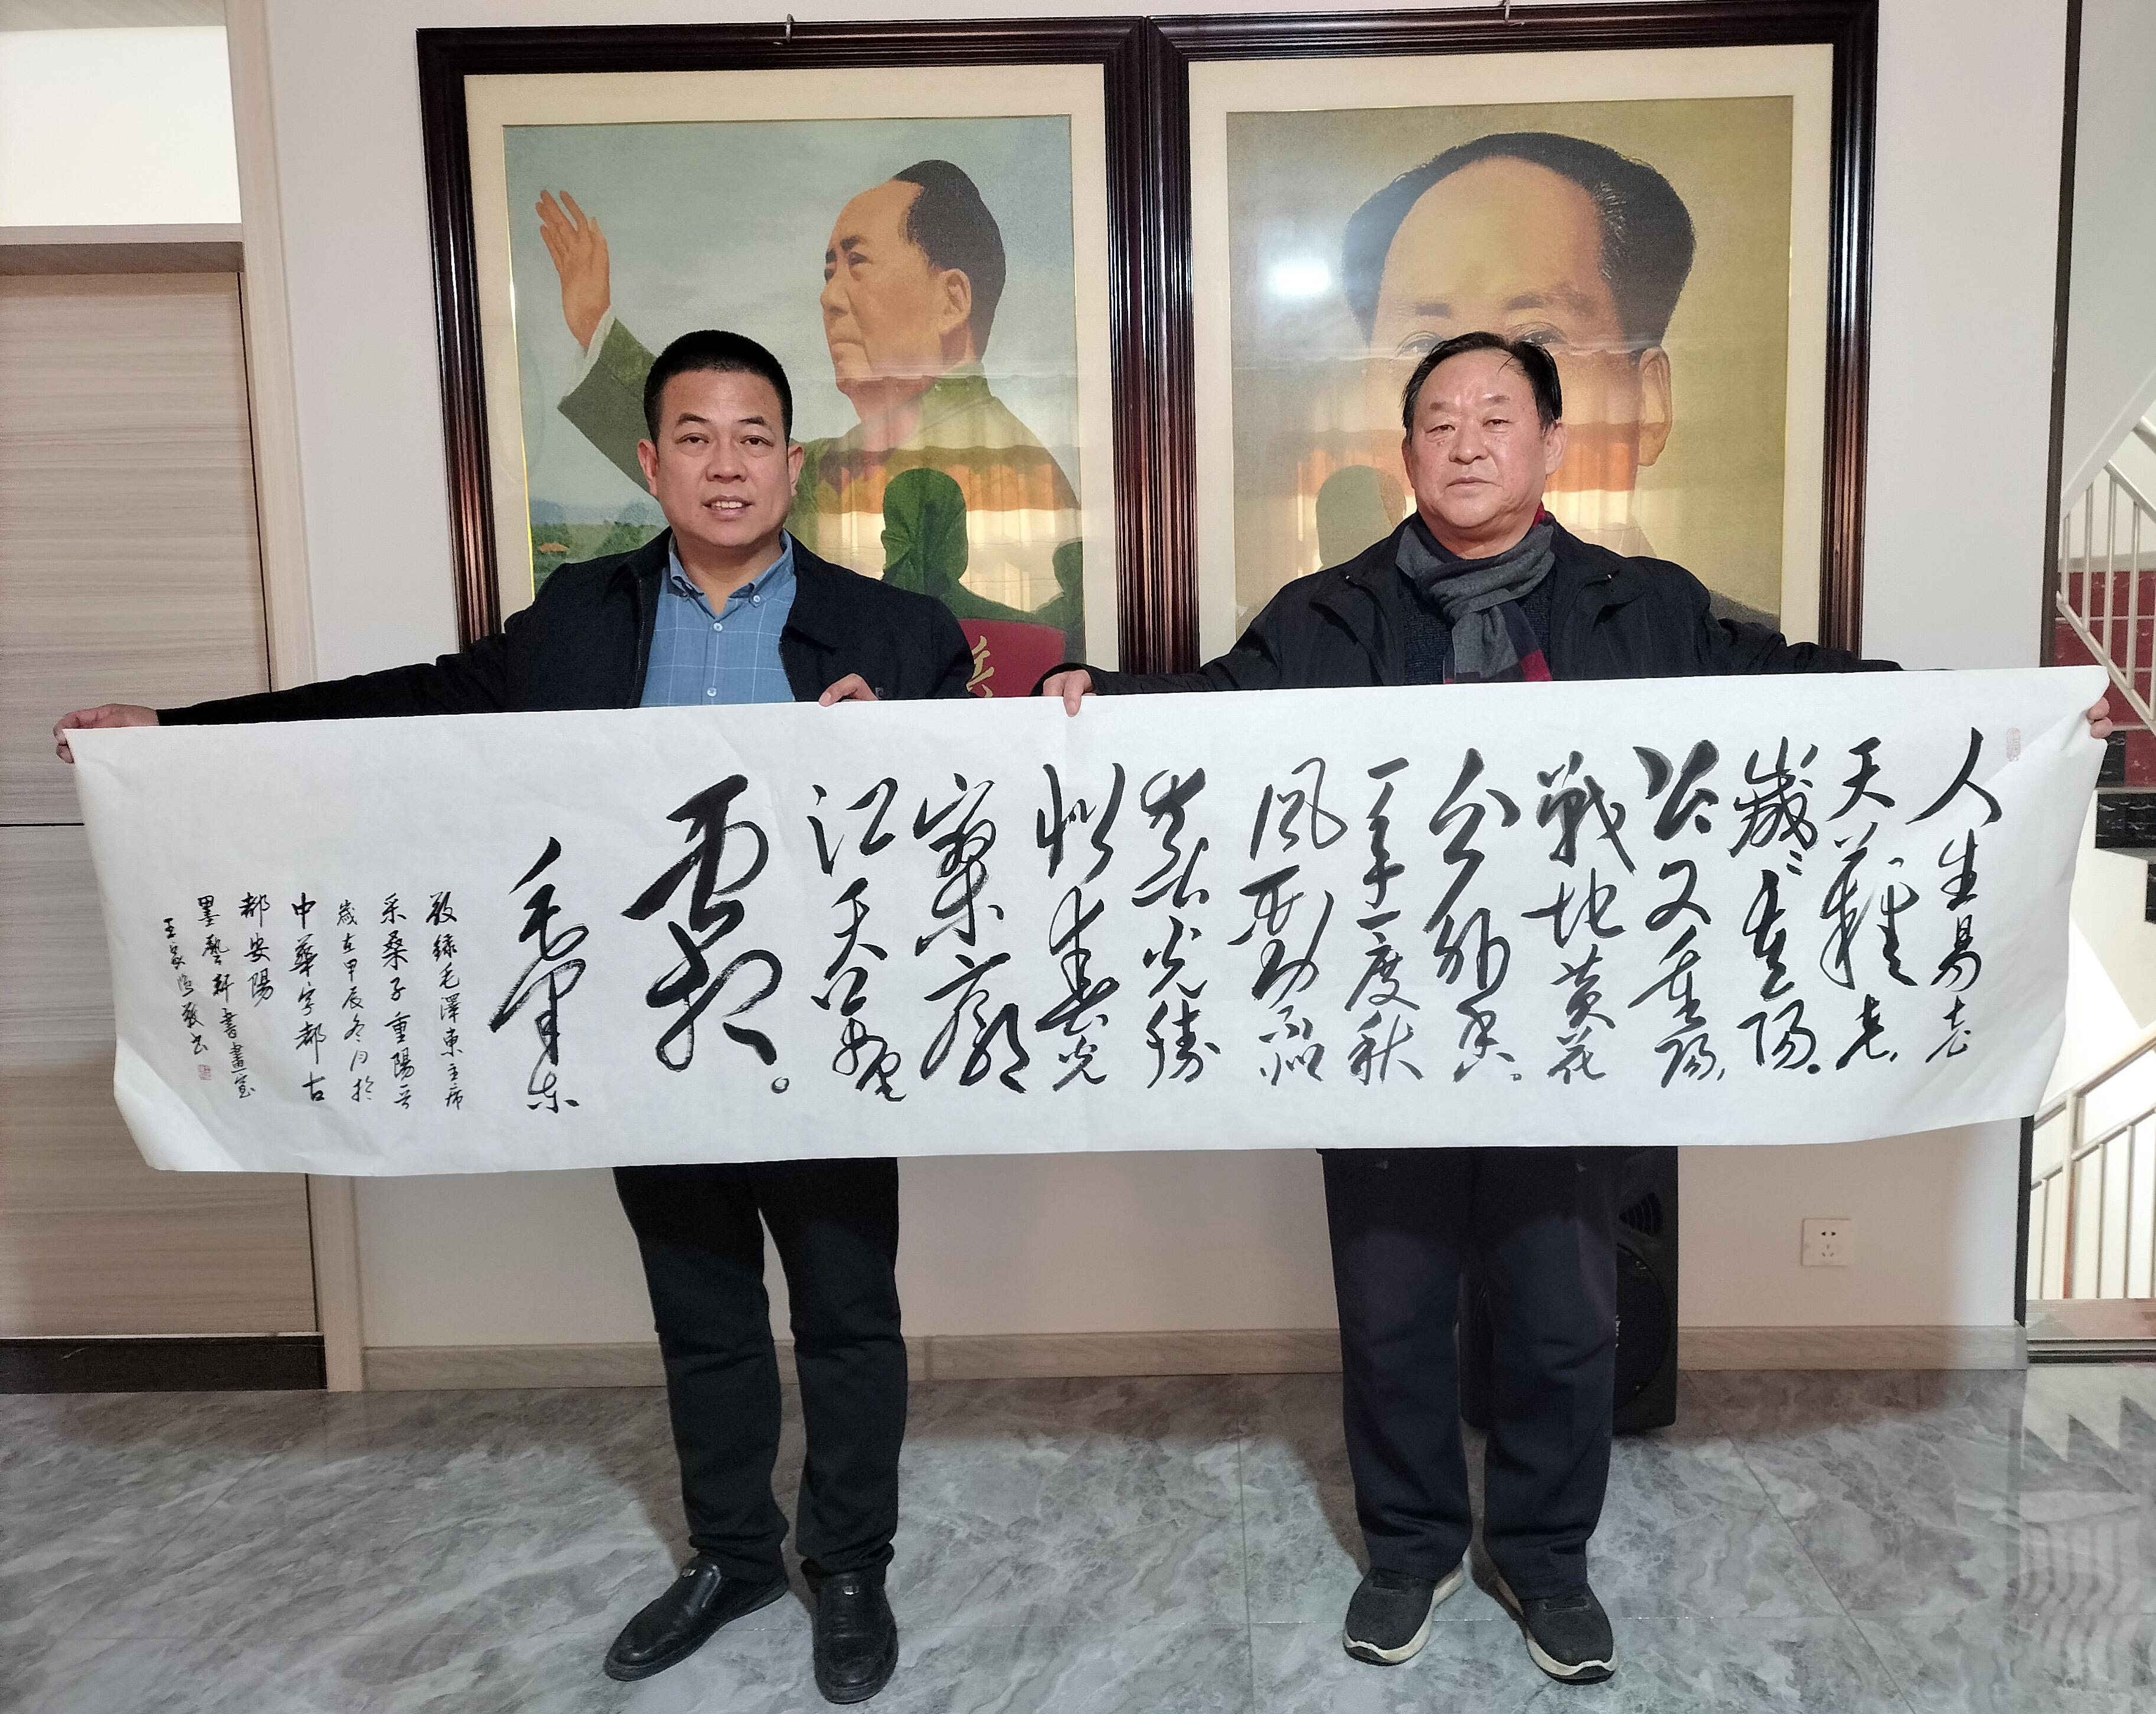 人生易老
天難老,
歲歲重陽。
今又重陽,
戰地黃花
分外香。
一年一度秋
風勁不似
春光勝
似春光
寥廓
江天萬里
霜。
毛澤東
敬錄毛澤東主席
采桑子重陽
歲在甲辰冬月於
中華字都古
都安陽
墨藝軒書畫室
王家敬書